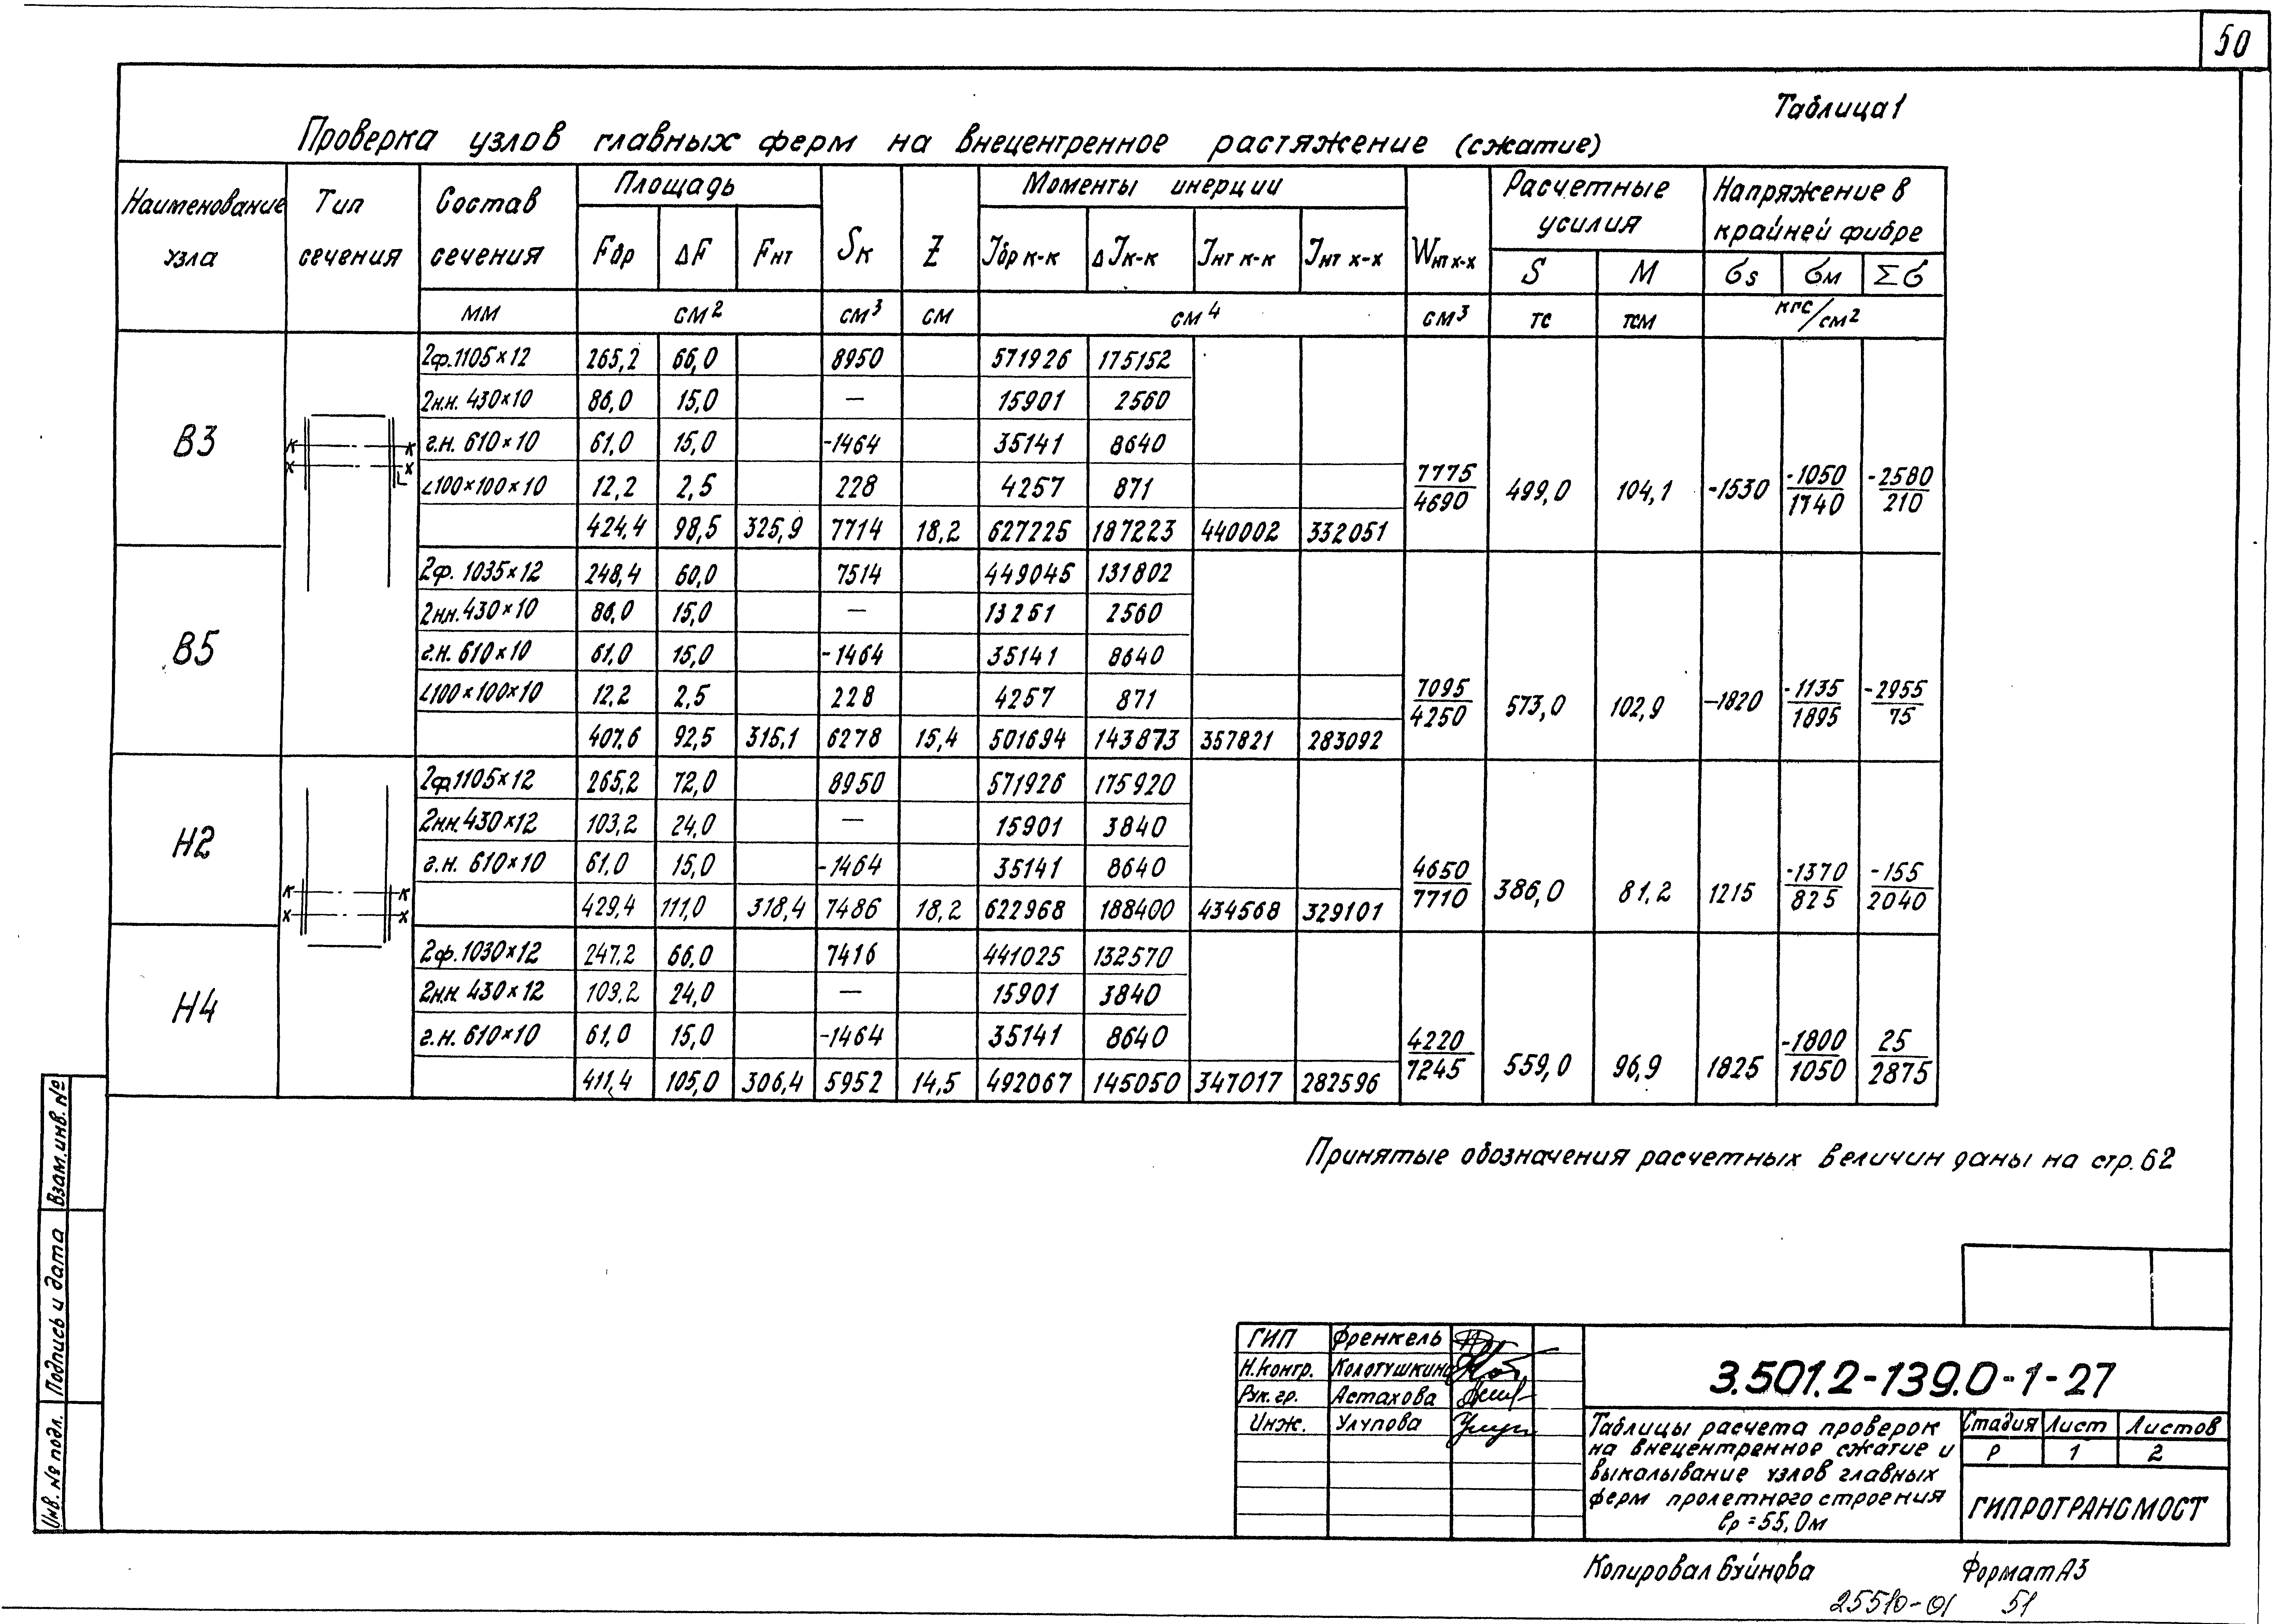 50
Таблица 1
Проверка узлов главных ферм на внецентренное растяжение (сжатие)
Наименование узла | Тип сечения | Состав сечения | Площадь | Sк | Z | Моменты инерции | Wнт х-х | Расчетные усилия | Напряжение в крайней фибре
Fбр | ΔF | Fнт | Jбр к-к | ΔJк-к | Jнт к-к | Jнт х-х | S | М | σs | σм | Σσ
мм | см² | см³ | см | см⁴ | см³ | тс | тсм | кгс/см²
В3
к к
х х
2ф.1105×12 | 265,2 | 66,0 | 8950 | 571926 | 175152
2н.н. 430×10 | 86,0 | 15,0 | — | 15901 | 2560
г.н. 610×10 | 61,0 | 15,0 | -1464 | 35141 | 8640
∟100×100×10 | 12,2 | 2,5 | 228 | 4257 | 871
424,4 | 98,5 | 325,9 | 7714 | 18,2 | 627225 | 187223 | 440002 | 332051 | 7775/4690 | 499,0 | 104,1 | -1530 | -1050/1740 | -2580/210
В5
2ф. 1035×12 | 248,4 | 60,0 | 7514 | 449045 | 131802
2нн. 430×10 | 86,0 | 15,0 | — | 13251 | 2560
г.н. 610×10 | 61,0 | 15,0 | -1464 | 35141 | 8640
∟100×100×10 | 12,2 | 2,5 | 228 | 4257 | 871
407,6 | 92,5 | 315,1 | 6278 | 15,4 | 501694 | 143873 | 357821 | 283092 | 7095/4250 | 573,0 | 102,9 | -1820 | -1135/1895 | -2955/75
Н2
2ф.1105×12 | 265,2 | 72,0 | 8950 | 571926 | 175920
2н.н. 430×12 | 103,2 | 24,0 | — | 15901 | 3840
г.н. 610×10 | 61,0 | 15,0 | -1464 | 35141 | 8640
429,4 | 111,0 | 318,4 | 7486 | 18,2 | 622968 | 188400 | 434568 | 329101 | 4650/7710 | 386,0 | 81,2 | 1215 | -1370/825 | -155/2040
к к
х х
Н4
2ф.1030×12 | 247,2 | 66,0 | 7416 | 441025 | 132570
2н.н. 430×12 | 103,2 | 24,0 | — | 15901 | 3840
г.н. 610×10 | 61,0 | 15,0 | -1464 | 35141 | 8640
411,4 | 105,0 | 306,4 | 5952 | 14,5 | 492067 | 145050 | 347017 | 282596 | 4220/7245 | 559,0 | 96,9 | 1825 | -1800/1050 | 25/2875
Принятые обозначения расчетных величин даны на стр. 62
Взам. инв. №
Подпись и дата
Инв. № подл.
ГИП Френкель
Н.контр. Колотушкина
Рук. гр. Астахова
Инж. Улупова
3.501.2-139.0-1-27
Таблицы расчета проверок
на внецентренное сжатие и
выкалывание узлов главных
ферм пролетного строения
ℓр = 55,0м
Стадия Лист Листов
Р 1 2
ГИПРОТРАНСМОСТ
Копировал Буйнова Формат А3
25510-01 51